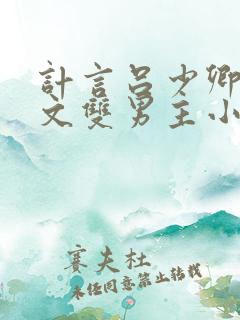 計言吕少卿
文雙男主小
賽夫杜
未经同意禁止转载